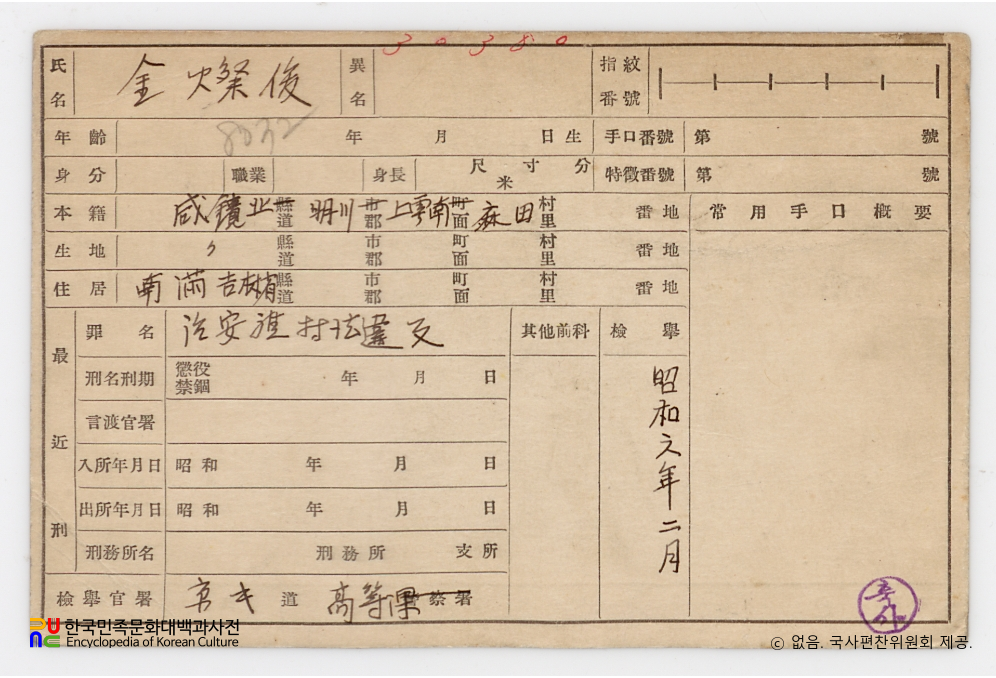 30380
氏名 金燦俊 異名 指紋番號
8032
年齡 年 月 日生 手口番號 第 號
身分 職業 身長 尺寸分 米 特徵番號 第 號
本籍 咸鏡北 縣道 明川 市郡 上雲南 町面 麻田 村里 番地 常用手口槪要
生地 〃 縣道 市郡 町面 村里 番地
住居 南滿吉林省 縣道 市郡 町面 村里 番地
最近刑 罪名 治安維持法違反 其他前科 檢擧
刑名刑期 懲役禁錮 年 月 日
昭和六年二月
言渡官署
入所年月日 昭和 年 月 日
出所年月日 昭和 年 月 日
刑務所名 刑務所 支所
檢擧官署 京キ 道 高等課 察署
한국민족문화대백과사전
Encyclopedia of Korean Culture
© 없음. 국사편찬위원회 제공.